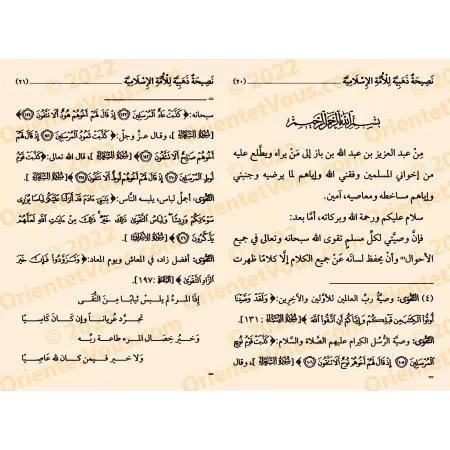 نَصِيحَةٌ ذَهَبِيَّةٌ لِلْأُمَّةِ الإِسْلَامِيَّةِ (٢٠)
بِسْمِ اللَّهِ الرَّحْمَنِ الرَّحِيمِ
مِنْ عبد العزيز بن عبد الله بن باز إلى مَنْ يراه ويطَّلع عليه
من إخواني المسلمين وفقني الله وإياهم لما يرضيه وجنبني
وإياهم مساخطه ومعاصيه، آمين.
سلام عليكم ورحمة الله وبركاته، أمَّا بعد:
فإنَّ وصيَّتي لكلِّ مسلم تقوى الله سبحانه وتعالى في جميع
الأحوال، وأنْ يحفظ لسانَه عَنْ جميع الكلام إلَّا كلامًا ظهرت
(٤) التَّقْوَى: وصيَّة ربِّ العالمين للأوَّلين والآخِرين: ﴿وَلَقَدْ وَصَّيْنَا
الَّذِينَ أُوتُوا الْكِتَابَ مِن قَبْلِكُمْ وَإِيَّاكُمْ أَنِ اتَّقُوا اللَّهَ﴾ [ : ١٣١].
التَّقْوَى: وصيَّة الرُّسل الكِرام عليهم الصَّلاة والسَّلام: ﴿كَذَّبَتْ قَوْمُ نُوحٍ
الْمُرْسَلِينَ ۝ إِذْ قَالَ لَهُمْ أَخُوهُمْ نُوحٌ أَلَا تَتَّقُونَ﴾ [سُورَةُ الشُّعَرَاءِ]، وقال
=
نَصِيحَةٌ ذَهَبِيَّةٌ لِلْأُمَّةِ الإِسْلَامِيَّةِ (٢١)
=
سبحانه: ﴿كَذَّبَتْ عَادٌ الْمُرْسَلِينَ ۝ إِذْ قَالَ لَهُمْ أَخُوهُمْ هُودٌ أَلَا تَتَّقُونَ﴾
[سُورَةُ الشُّعَرَاءِ]، وقال عزَّ وجلَّ: ﴿كَذَّبَتْ ثَمُودُ الْمُرْسَلِينَ ۝ إِذْ قَالَ لَهُمْ
أَخُوهُمْ صَالِحٌ أَلَا تَتَّقُونَ﴾ [سُورَةُ الشُّعَرَاءِ]، قال الله تعالى: ﴿كَذَّبَتْ قَوْمُ
لُوطٍ الْمُرْسَلِينَ ۝ إِذْ قَالَ لَهُمْ أَخُوهُمْ لُوطٌ أَلَا تَتَّقُونَ﴾ [سُورَةُ الشُّعَرَاءِ].
التَّقْوَى: أجمل لباس، يلبسه النَّاس: ﴿يَا بَنِي آدَمَ قَدْ أَنزَلْنَا عَلَيْكُمْ لِبَاسًا يُوَارِي
سَوْآتِكُمْ وَرِيشًا وَلِبَاسُ التَّقْوَىٰ ذَٰلِكَ خَيْرٌ ذَٰلِكَ مِنْ آيَاتِ اللَّهِ لَعَلَّهُمْ
يَذَّكَّرُونَ﴾ [سُورَةُ الأَعْرَافِ].
التَّقْوَى: أفضل زاد، في المعاش ويوم المعاد: ﴿وَتَزَوَّدُوا فَإِنَّ خَيْرَ
الزَّادِ التَّقْوَىٰ﴾ [ : ١٩٧].
إِذَا المَرْءُ لَمْ يَلْبَسْ ثِيَابًا مِنَ التُّقَى
تَجَرَّدَ عُرْيَانًا وَإِنْ كَانَ كَاسِيًا
وَخَيْرُ خِصَالِ المَرْءِ طَاعَةُ رَبِّهِ
وَلَا خَيْرَ فِيمَنْ كَانَ للهِ عَاصِيًا
© 2022
OrientetVous.com